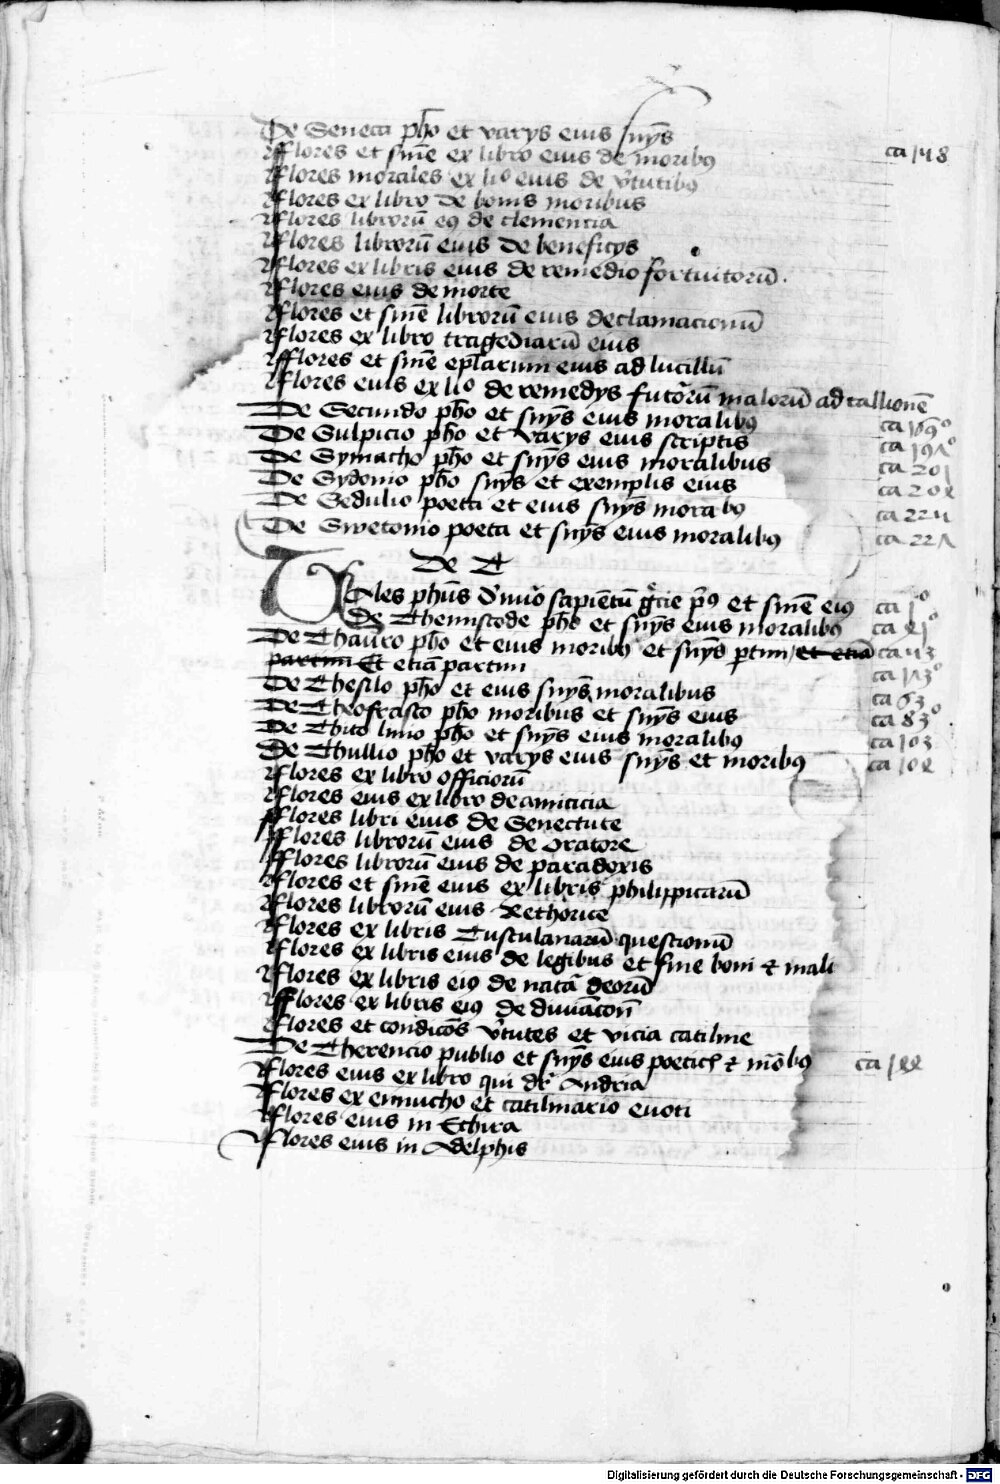 De Seneca pho et varys eius snys
fflores et sine ex libro eius de moribus ca 148
fflores morales ex lio eius de vtutibus
fflores ex libro de bonis moribus
fflores librorū eius de clemencia
fflores librorū eius de beneficys
fflores ex libris eius de remedio fortuitorū.
fflores eius de morte
fflores et sine librorū eius declamacionū
fflores ex libro tragediarū eius
fflores et sine eplarum eius ad lucillū
fflores eius ex lio de remedys futurorū malorū ad callionē
De Secundo pho et snys eius moralibus
De Sulpicio pho et varys eius scriptis
De Symacho pho et snys eius moralibus ca 201
De Sydonio pho snys et exemplis eius
De Sedulio poeta et eius snys morabo
De Swetonio poeta et snys eius moralibus
De T
Tales phus sapientū et sine eius
De Themistode pho et snys eius moralibus
De Thauro pho et eius moribus et snys ptim et etiā
partim Et etiā partim
De Thesilo pho et eius snys moralibus
De Theofrasto pho moribus et snys eius ca 63
De Thito linio pho et snys eius moralibus ca 83o
De Thullio pho et varys eius snys et moribus ca 103
fflores ex libro officiorū
fflores eius ex libro de amicicia
fflores libri eius de Senectute
fflores librorū eius de Oratore
fflores librorū eius de paradoxis
fflores et sine eius ex libris philippicarū
fflores librorū eius Rethorice
fflores ex libris Tusculanarū questionū
fflores ex libris eius de legibus et fine boni et mali
fflores ex libris eius de natā deorū
fflores ex libris eius de diuiācoñ
fflores et condicōs vtutes et vicia catiline
De Therencio publio et snys eius poetich et mōbus
fflores eius ex libro qui dr Andria
fflores ex ennucho et catilinario euoti
fflores eius in Echira
fflores eius in Adelphis
Digitalisierung gefördert durch die Deutsche Forschungsgemeinschaft - DFG